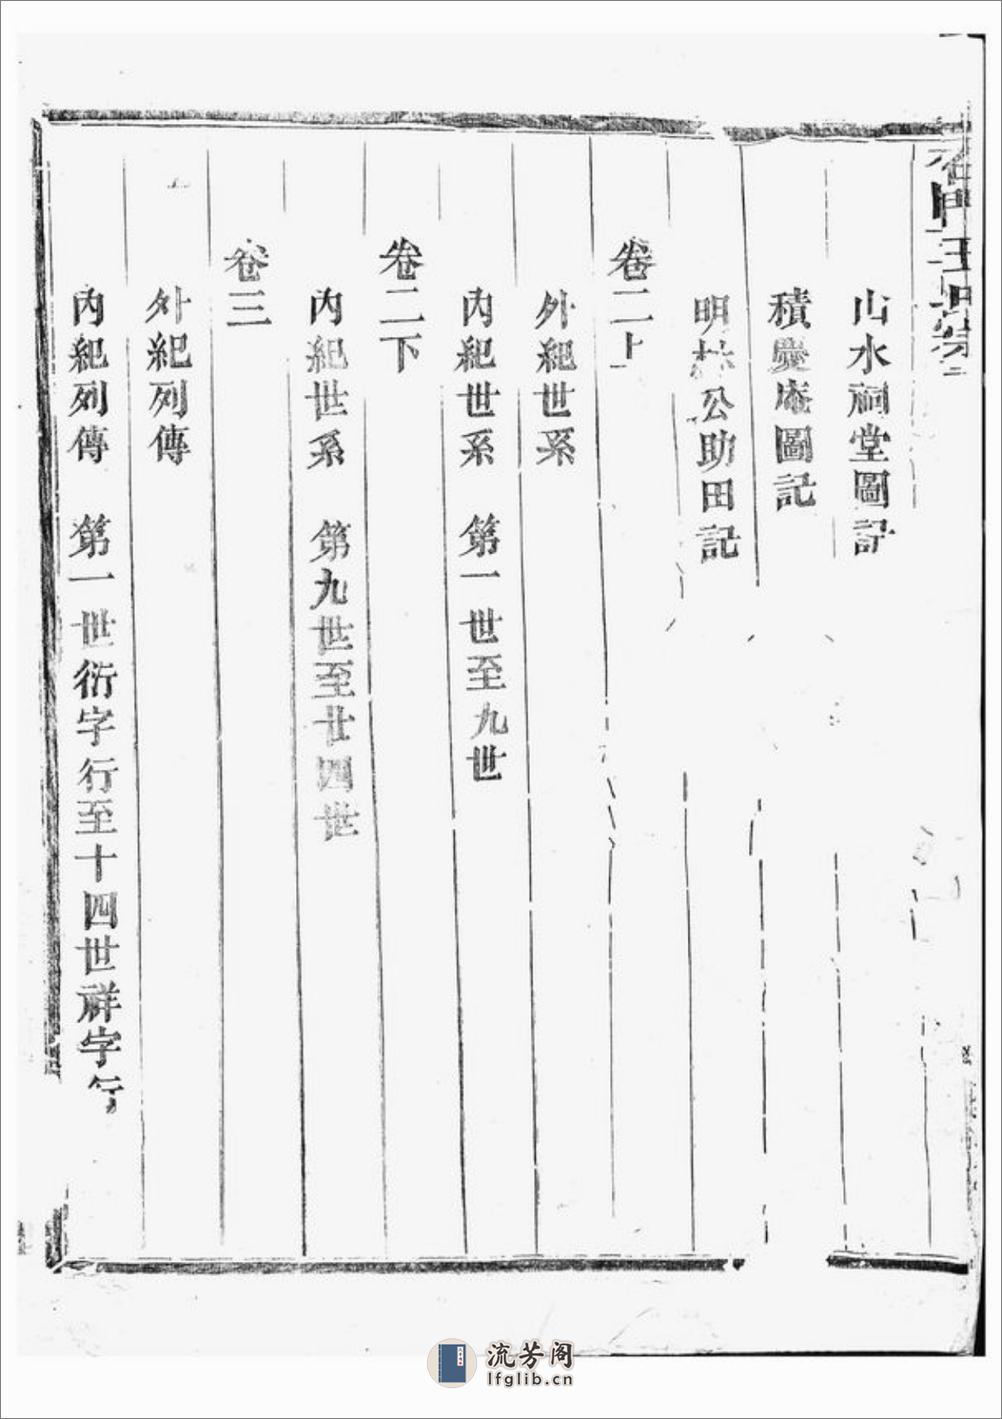 山水祠堂圖記
積慶庵圖記
明林公助田記
卷二上
外紀世系
內紀世系 第一世至九世
卷二下
內紀世系 第九世至廿四世
卷三
外紀列傳
內紀列傳 第一世衍字行至十四世祥字行
流芳阁
lfglib.cn